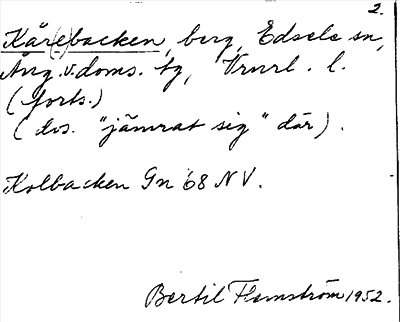 2.
Käre(e)backen, berg, Edsele sn,
Ång. v. doms. tg, Vrnrl. l.
(forts.)
(dvs. "jämrat sig" där).
Kolbacken Gn 68 NV.
Bertil Flemström 1952.